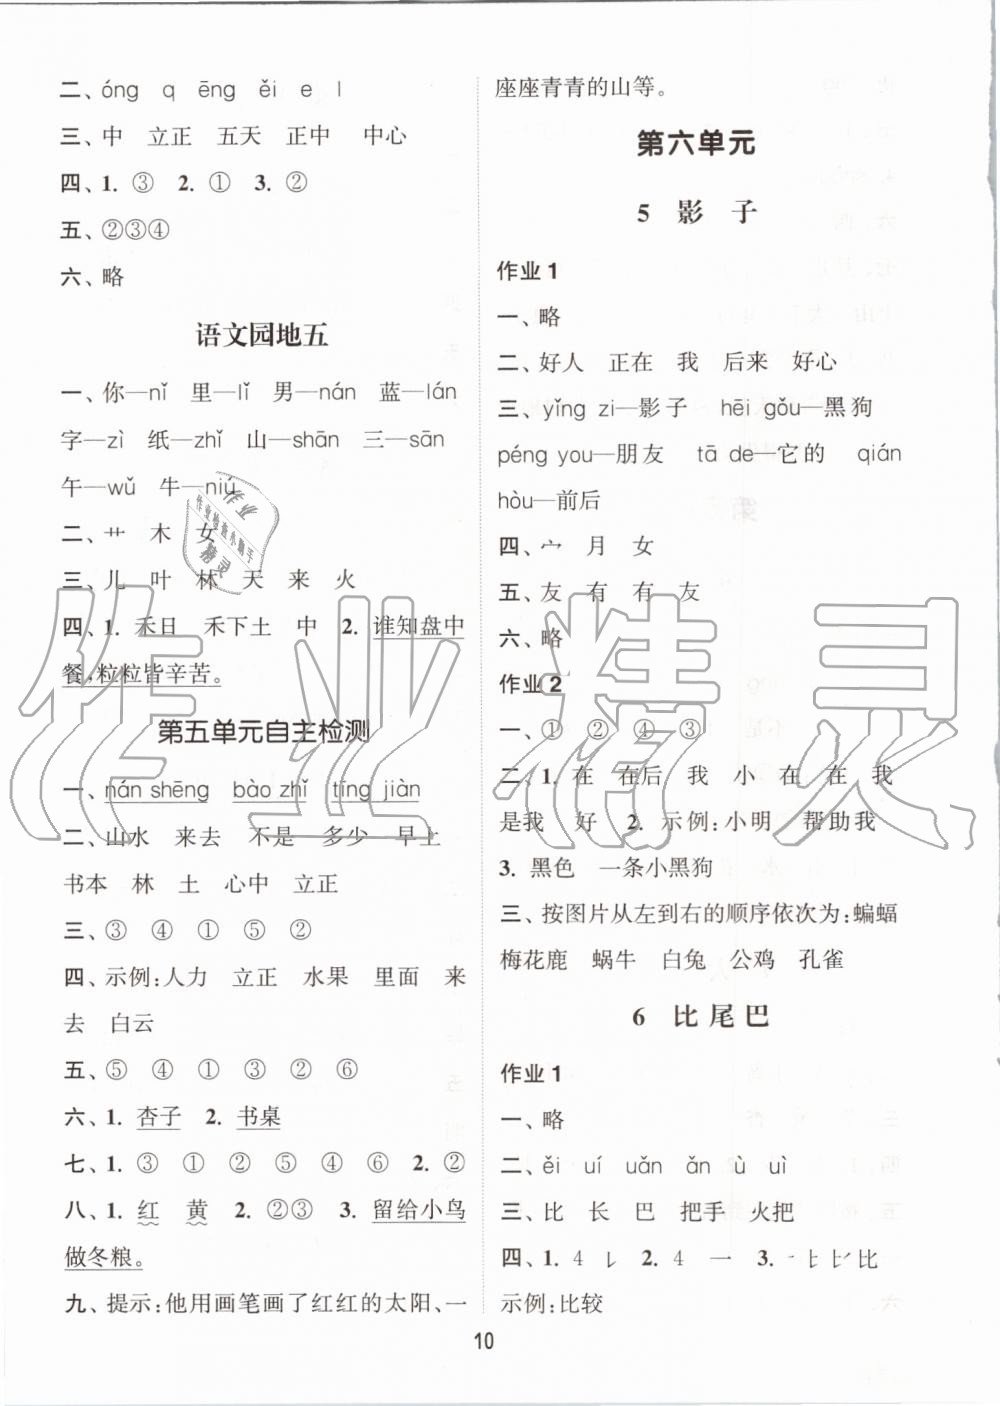 二、óng q ēng ěi e l
三、中 立正 五天 正中 中心
四、1. ③ 2. ① 3. ②
五、②③④
六、略
语文园地五
一、你—nǐ 里—lǐ 男—nán 蓝—lán
字—zì 纸—zhǐ 山—shān 三—sān
午—wǔ 牛—niú
二、艹 木 女
三、儿 叶 林 天 来 火
四、1. 禾日 禾下土 中 2. 谁知盘中
餐,粒粒皆辛苦。
第五单元自主检测
一、nán shēng bào zhǐ tīng jiàn
二、山水 来去 不是 多少 早上
书本 林 土 心中 立正
三、③ ④ ① ⑤ ②
四、示例:人力 立正 水果 里面 来
去 白云
五、⑤ ④ ① ③ ② ⑥
六、1. 杏子 2. 书桌
七、1. ③ ① ② ⑤ ④ ⑥ 2. ②
八、1. 红 黄 2. ②③ 3. 留给小鸟
做冬粮。
九、提示:他用画笔画了红红的太阳、一
座座青青的山等。
第六单元
5 影 子
作业 1
一、略
二、好人 正在 我 后来 好心
三、yǐng zi—影子 hēi gǒu—黑狗
péng you—朋友 tā de—它的 qián
hòu—前后
四、宀 月 女
五、友 有 有 友
六、略
作业 2
一、① ② ④ ③
二、1. 在 在后 我 小 在 在 我
是我 好 2. 示例:小明 帮助我
3. 黑色 一条小黑狗
三、按图片从左到右的顺序依次为:蝙蝠
梅花鹿 蜗牛 白兔 公鸡 孔雀
6 比尾巴
作业 1
一、略
二、ěi uí uǎn ǎn ù uì
三、比 长 巴 把手 火把
四、1. 4 ㇙ 2. 4 一 3. 比
示例:比较
10
作业精灵
作业
作业检查小助手
精灵